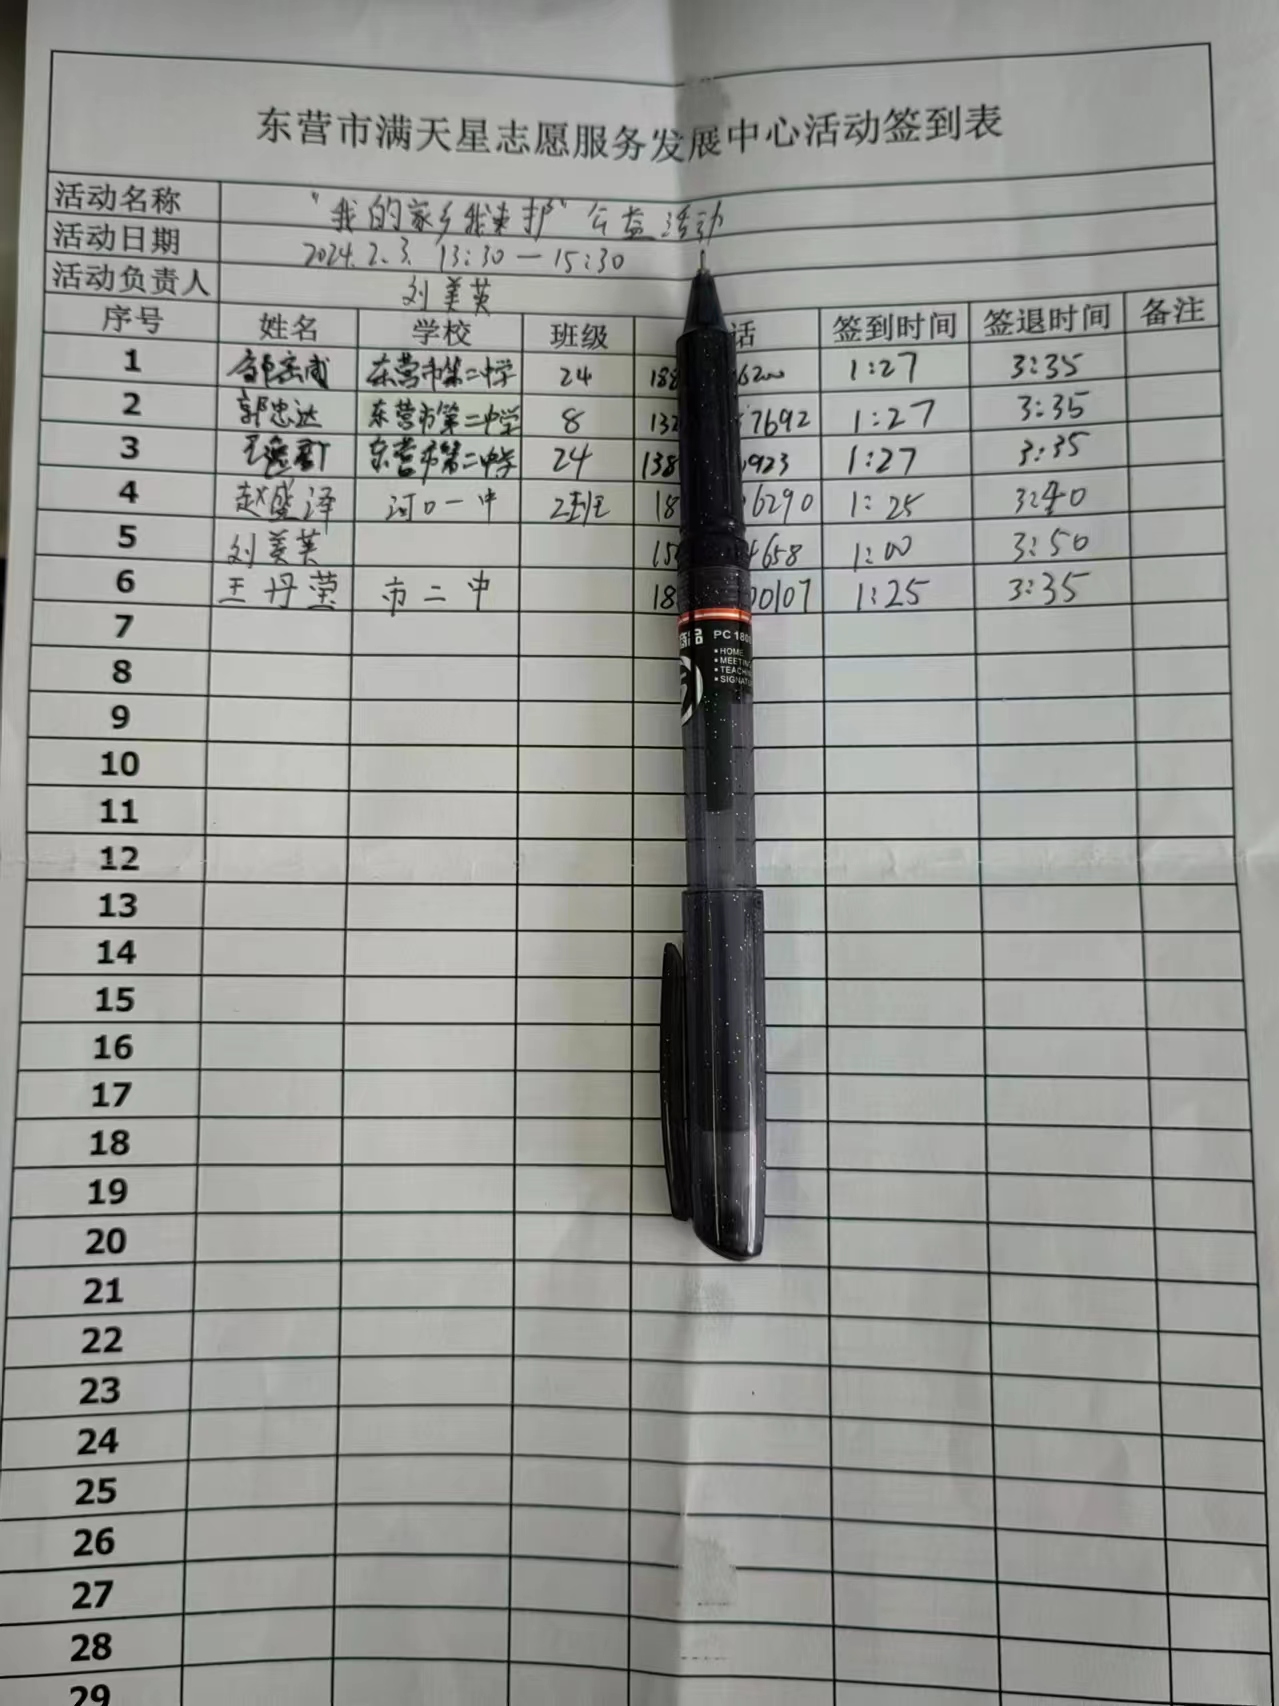 东营市满天星志愿服务发展中心活动签到表
活动名称 "我的家乡我来护"公益活动
活动日期 2024.2.3. 13:30—15:30
活动负责人 刘美英
序号 姓名 学校 班级 话 签到时间 签退时间 备注
1 东营市第二中学 24 188 6200 1:27 3:35
2 郭忠达 东营市第二中学 8 132 7692 1:27 3:35
3 东营市第二中学 24 138 923 1:27 3:35
4 赵盛泽 河口一中 2班 18 6290 1:25 3:40
5 刘美英 15 4658 1:00 3:50
6 王丹 市二中 18 00107 1:25 3:35
7
8
9
10
11
12
13
14
15
16
17
18
19
20
21
22
23
24
25
26
27
28
29
PC 180
HOME
MEETIN
TEACH
SIGNAT